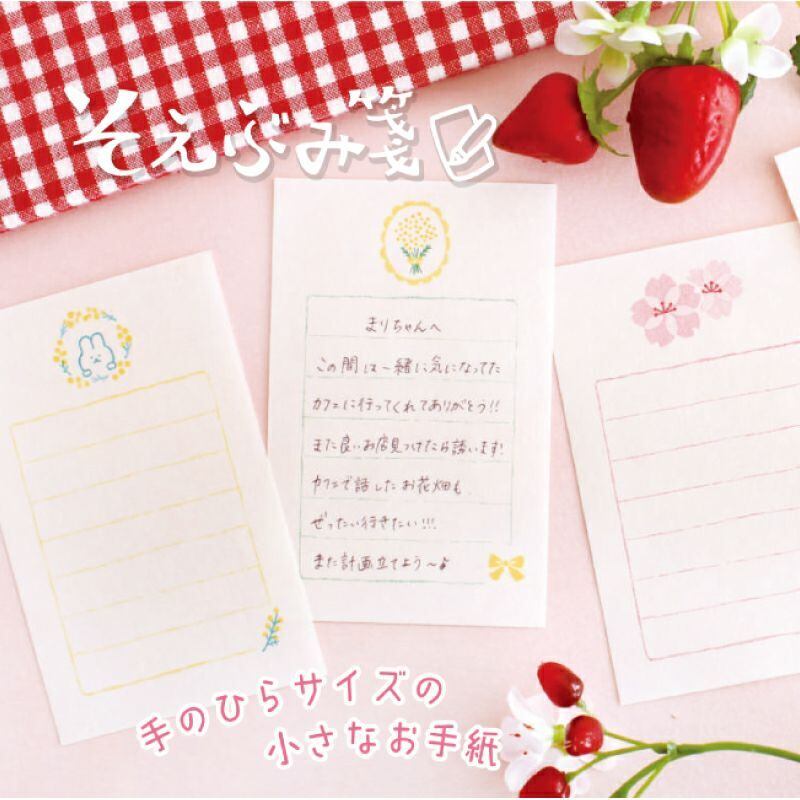 そえぶみ箋
まりちゃんへ
この間は一緒に気になってた
カフェに行ってくれてありがとう!!
また良いお店見つけたら誘います!
カフェで話したお花畑も
ぜったい行きたい!!!
また計画立てよう〜♪
手のひらサイズの
小さなお手紙